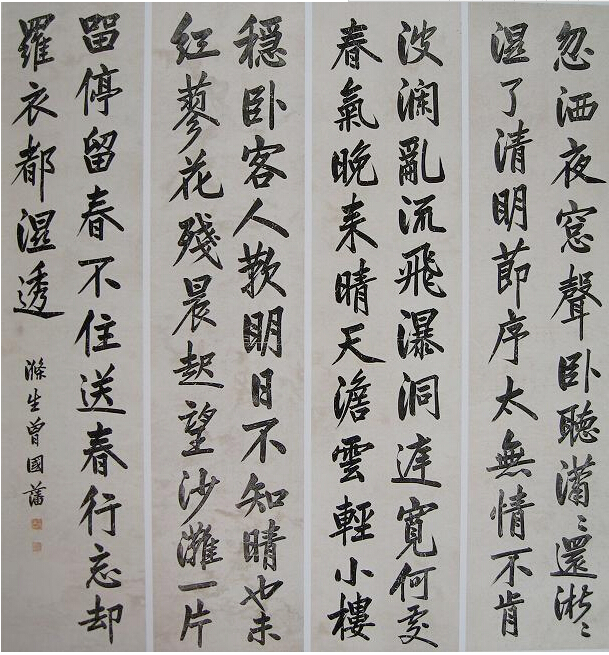 忽洒夜窓聲卧聽瀟〻還淅〻
湿了清明節序太無情不肯
波澜亂流飛瀑洞庭寬何處
春氣晚来晴天澹雲輕小樓
穩卧客人歎明日不知晴也未
紅蓼花殘晨起望沙灘一片
留停留春不住送春行忘却
羅衣都湿透
滌生曾國藩